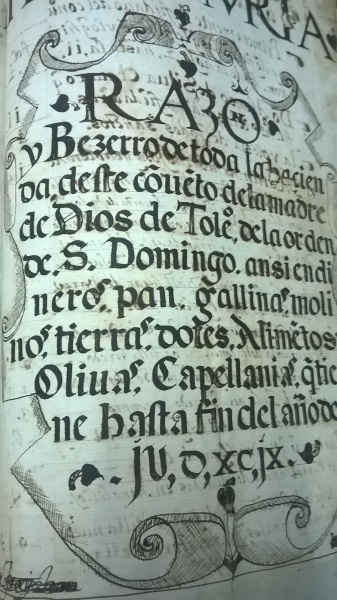 RAZON
y Bezerro de toda la hacien
da, deste cõuẽto dela madre
de Dios de Tolº, dela orden
de. S. Domingo. ansi en di
neros. pan. gallinas, moli
nos, tierras. dotes, Alimẽtos
Oliuas, Capellanias, q̃ tie
ne hasta fin del año de
. JU, D, XC, IX.